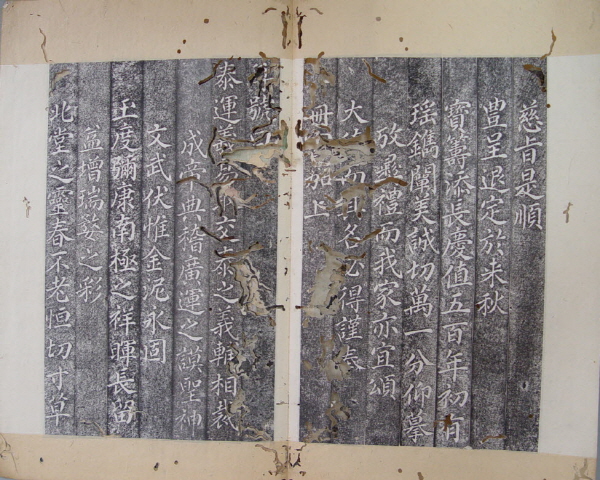 慈旨是順
豊呈退定於来秋
寶籌添長慶值五百年初有
瑶鐫闡美誠切萬一分仰摹
攷彛禮而我家亦宜頌
大 而其名必得謹
冊 加上
號
泰運義 交泰之義軒相裁
成帝典稽廣運之謨聖神
文武伏惟金泥永固
玉度彌康南極之祥暉長留
益增瑞婺之彩
北堂之靈春不老恒切寸草